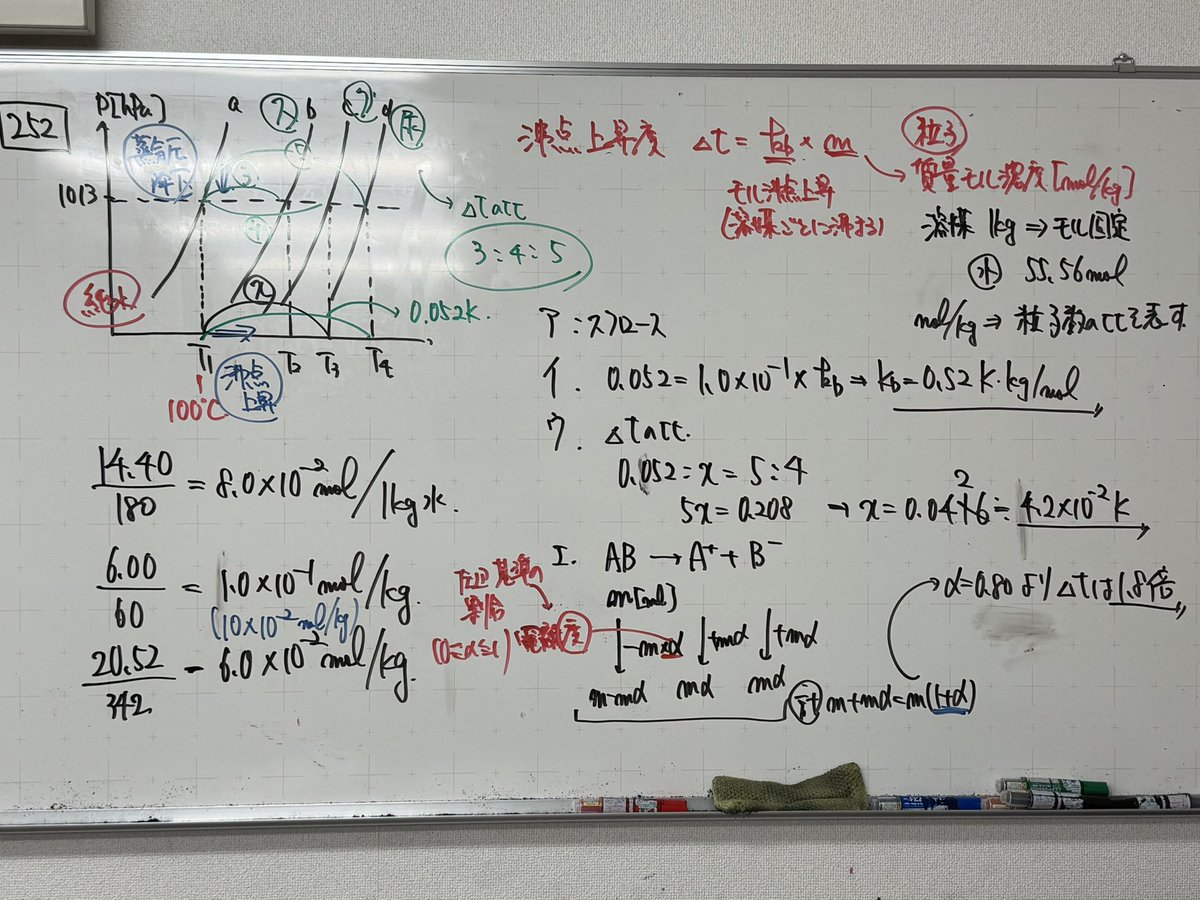 252
P[hPa]
a ス b c グ d 尿
蒸気圧
降下
3
4
5
1013
→ Δtαcc
3:4:5
純水
x
0.052K
T1 T2 T3 T4
100℃
沸点
上昇
14.40/180 = 8.0×10⁻² mol/1kg水.
6.00/60 = 1.0×10⁻¹ mol/kg.
(10×10⁻² mol/kg)
20.52/342 = 6.0×10⁻² mol/kg.
沸点上昇度 Δt = kb × m
粒子
→ 質量モル濃度[mol/kg]
モル沸点上昇
(溶媒ごとに決まる)
溶媒 1kg ⇒ モル固定
水 55.56mol
mol/kg ⇒ 粒子数αccを表す
ア:スクロース
イ. 0.052 = 1.0×10⁻¹ × kb ⇒ kb = 0.52 K·kg/mol
ウ. Δtαcc.
0.052 : x = 5 : 4
5x = 0.208 → x = 0.0416 2 ≒ 4.2×10⁻² K
エ. AB → A⁺ + B⁻
m[mol]
基準の
割合
(0≦α≦1) 電離度
-m×α +mα +mα
m-mα mα mα
計 m+mα=m(1+α)
→ α=0.80より Δtは1.8倍